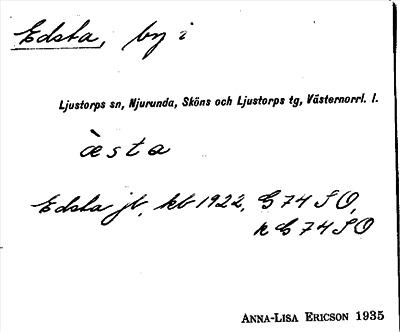 Edsta, by i
Ljustorps sn, Njurunda, Sköns och Ljustorps tg, Västernorrl. l.
æ̀sta
Edsta jb, kb 1922, G 74 SO,
k G 74 SO
ANNA-LISA ERICSON 1935